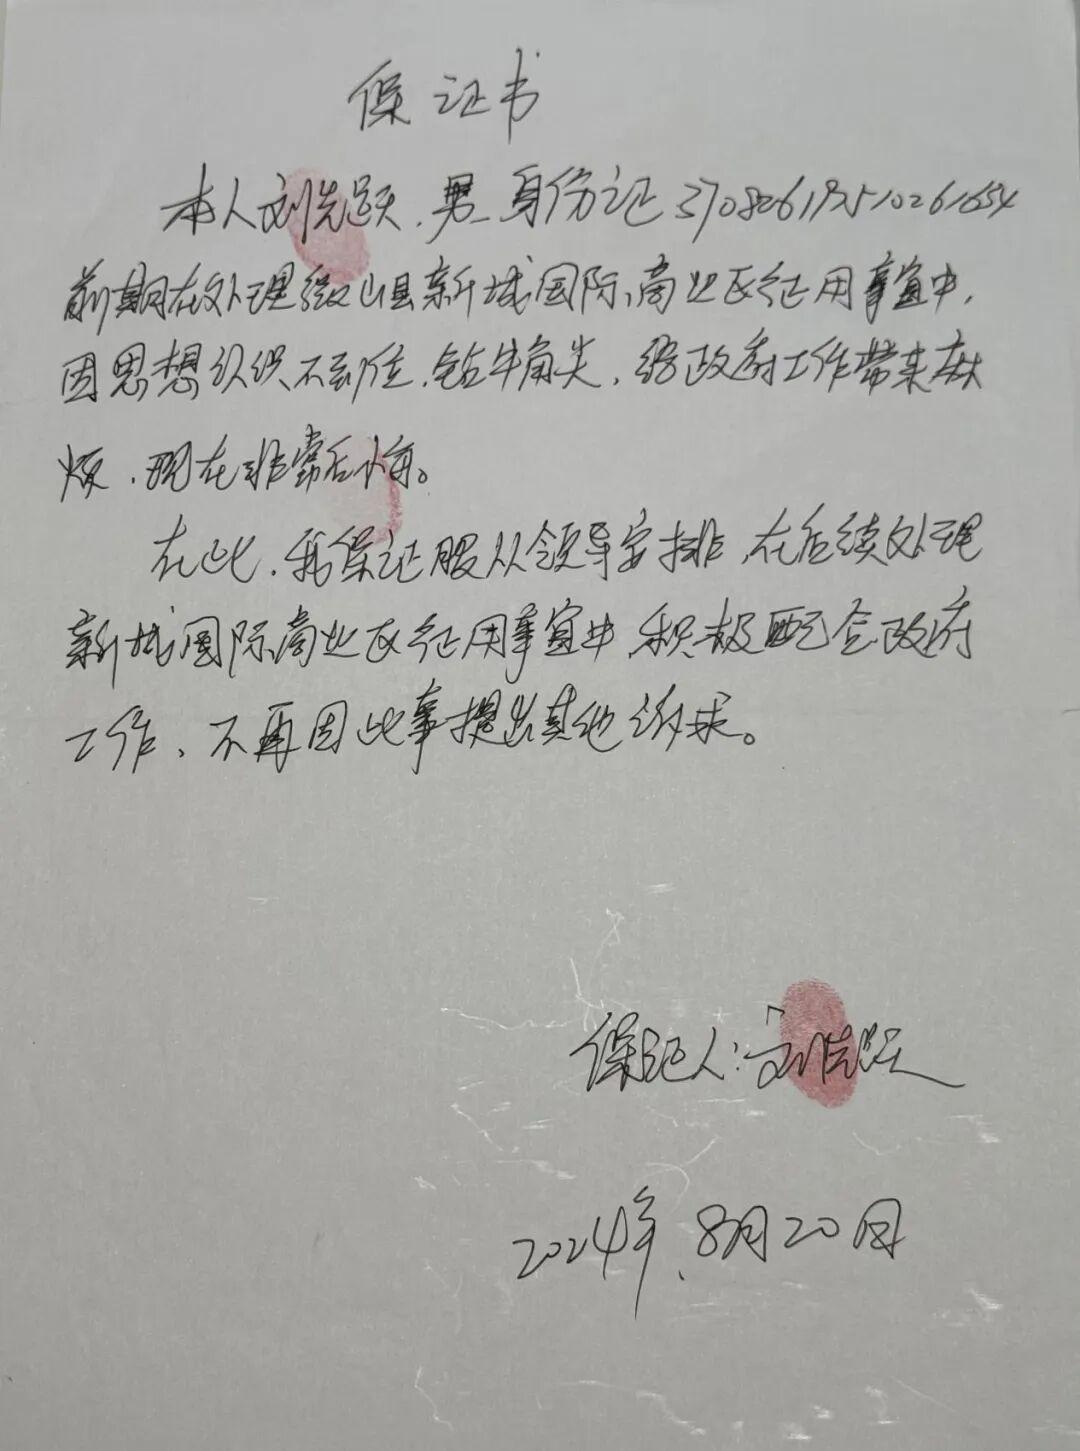 保证书
本人刘先跃，男，身份证370826195510261654
前期在处理微山县新城国际商业区征用事宜中，
因思想认识不到位，钻牛角尖，给政府工作带来麻
烦，现在非常后悔。
在此，我保证服从领导安排，在后续处理
新城国际商业区征用事宜中，积极配合政府
工作，不再因此事提出其他诉求。
保证人：刘先跃
2024年8月20日